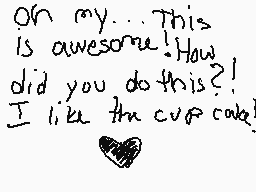 oh my... This
is awesome! How
did you do this?!
I like the cup cake!